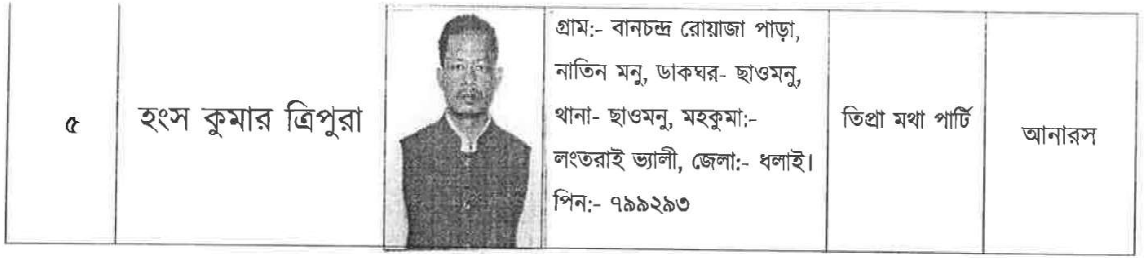 ৫
হংস কুমার ত্রিপুরা
গ্রাম:- বানচন্দ্র রোয়াজা পাড়া,
নাতিন মনু, ডাকঘর- ছাওমনু,
থানা- ছাওমনু, মহকুমা:-
লংতরাই ভ্যালী, জেলা:- ধলাই।
পিন:- ৭৯৯২৯৩
তিপ্রা মথা পার্টি
আনারস